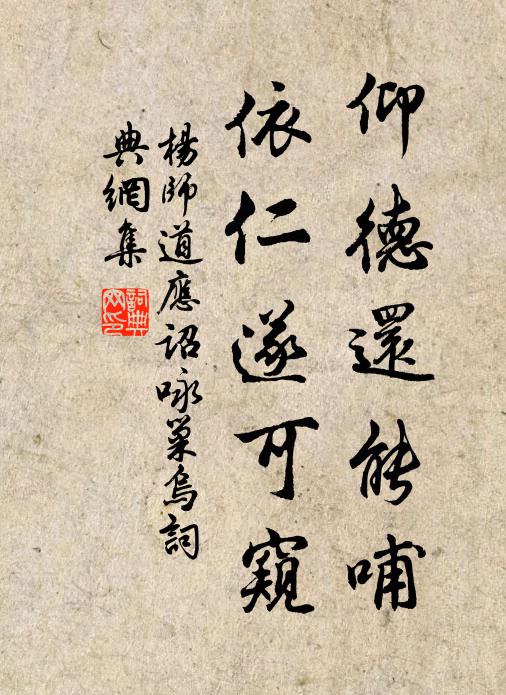 仰德還能哺
依仁遂可窺
楊師道應詔咏巢烏詞
典網集
詞典
网印